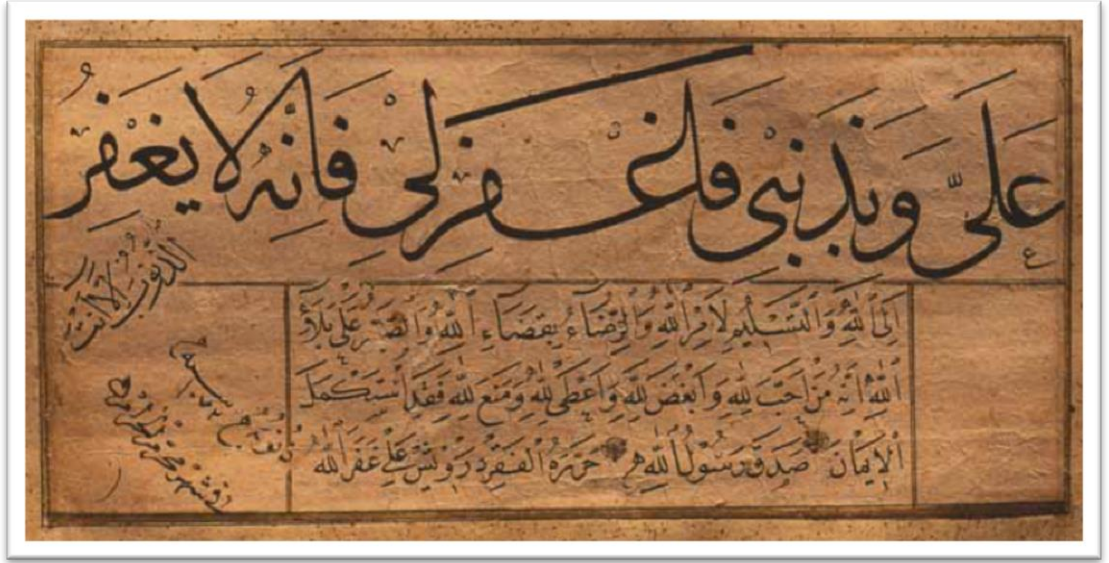 علىَّ وبذنبى فاغفر لى فانّه لا يغفر
الذنوب الا انت
الَى اللهِ وَالتَّسْلِيمِ لِاَمْرِ اللهِ وَالرِّضَاءُ بِقَضَاءِ اللهِ وَالصَّبْرُ عَلَى بَلَاءِ
اللهِ اِنَّهُ مَنْ اَحَبَّ لِلهِ وَاَبْغَضَ لِلهِ وَاَعْطَى لِلهِ وَمَنَعَ لِلهِ فَقَدِ اسْتَكْمَلَ
الْاِيْمَانَ صَدَقَ رَسُوْلُ اللهِ حَرَّرَهُ الْفَقِيْرُ دَرْوِيْش عَلِى غَفَرَ اللهُ
ذنوبه فى سنة
شهر محرم الحرام